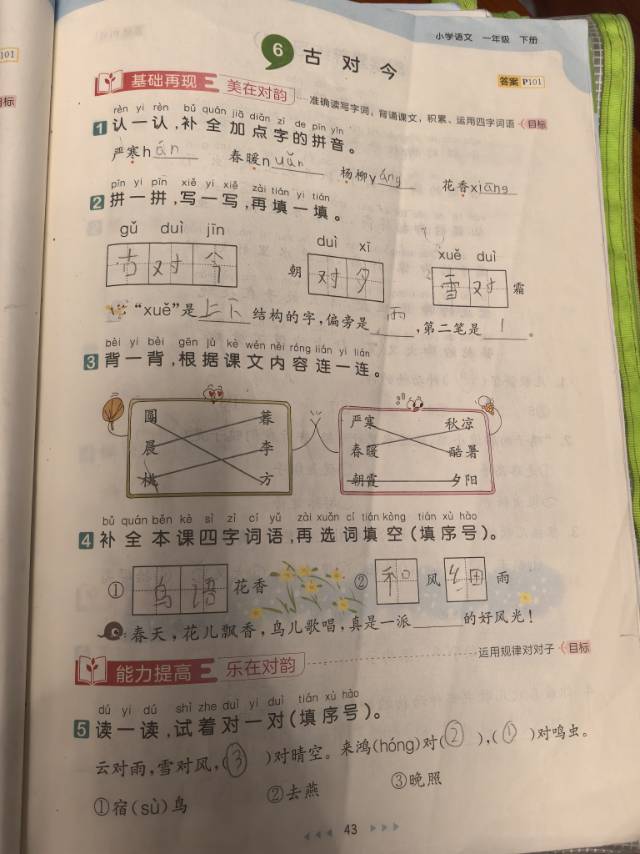 小学语文 一年级 下册
6 古对今
答案 P101
101
目标
基础再现 美在对韵
准确读写字词，背诵课文，积累、运用四字词语 目标
rèn yi rèn bǔ quán jiā diǎn zì de pīn yīn
1 认一认，补全加点字的拼音。
严寒hán 春暖nuǎn 杨柳yáng 花香xiāng
pīn yi pīn xiě yi xiě zài tián yi tián
2 拼一拼，写一写，再填一填。
gǔ duì jīn duì xī xuě duì
古对今 朝对夕 雪对霜
“xuě”是上下结构的字，偏旁是雨，第二笔是丨。
bèi yi bèi gēn jù kè wén nèi róng lián yi lián
3 背一背，根据课文内容连一连。
圆 暮 严寒 秋凉
晨 李 春暖 酷暑
桃 方 朝霞 夕阳
bǔ quán běn kè sì zì cí yǔ zài xuǎn cí tián kòng tián xù hào
4 补全本课四字词语，再选词填空（填序号）。
① 鸟语花香 ② 和风细雨
春天，花儿飘香，鸟儿歌唱，真是一派____的好风光！
能力提高 乐在对韵
运用规律对对子 目标
dú yi dú shì zhe duì yi duì tián xù hào
5 读一读，试着对一对（填序号）。
云对雨，雪对风，（③）对晴空。来鸿(hóng)对（②），（①）对鸣虫。
①宿(sù)鸟 ②去燕 ③晚照
43